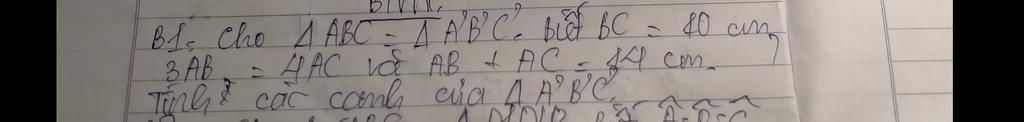 B1. Cho Δ ABC = Δ A'B'C'. Biết BC = 10 cm,
3AB = 4AC và AB + AC = 14 cm.
Tính các cạnh của Δ A'B'C'.